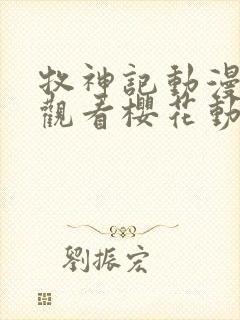 牧神記動漫
觀看櫻花動
劉振宏